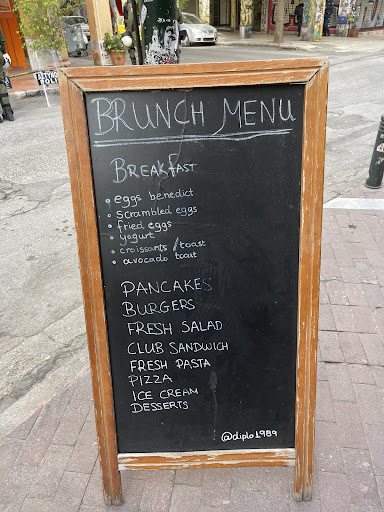 BRUNCH MENU
BREAKFAST
• eggs benedict
• scrambled eggs
• fried eggs
• yogurt
• croissants / toast
• avocado toast
PANCAKES
BURGERS
FRESH SALAD
CLUB SANDWICH
FRESH PASTA
PIZZA
ICE CREAM
DESSERTS
@diplo1989